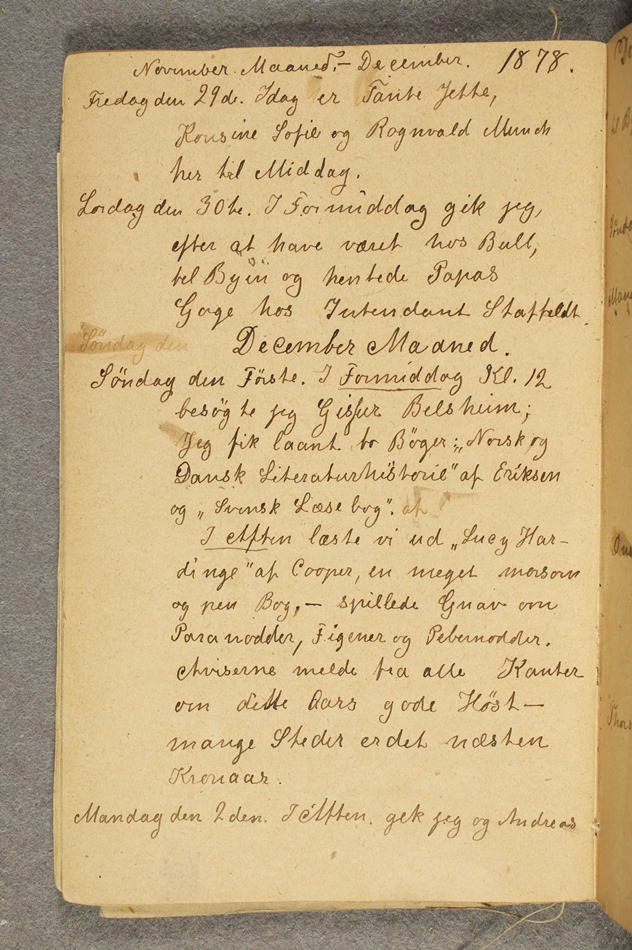 November Maaned,- December. 1878.
Fredag den 29de. Idag er Tante Jette,
Kousine Sofie og Ragnvald Munch
her til Middag.
Lördag den 30te. I Formiddag gik jeg,
efter at have været hos Bull,
til Byen og hentede Papas
Gage hos Intendant Staffeldt.
Söndag den
December Maaned.
Söndag den Förste. I Formiddag Kl. 12
besögte jeg Gisjur Belsheim;
Jeg fik laant to Böger: „Norsk og
Dansk Literaturhistorie" af Eriksen
og „Svensk Læsebog". af
I Aften læste vi ud „Lucy Har-
dinge" af Cooper, en meget morsom
og pen Bog, — spillede Gnav om
Paranödder, Figener og Pebernödder.
Aviserne melde fra alle Kanter
om dette Aars gode Höst —
mange Steder er det næsten
Kronaar.
Mandag den 2den. I Aften gik jeg og Andreas